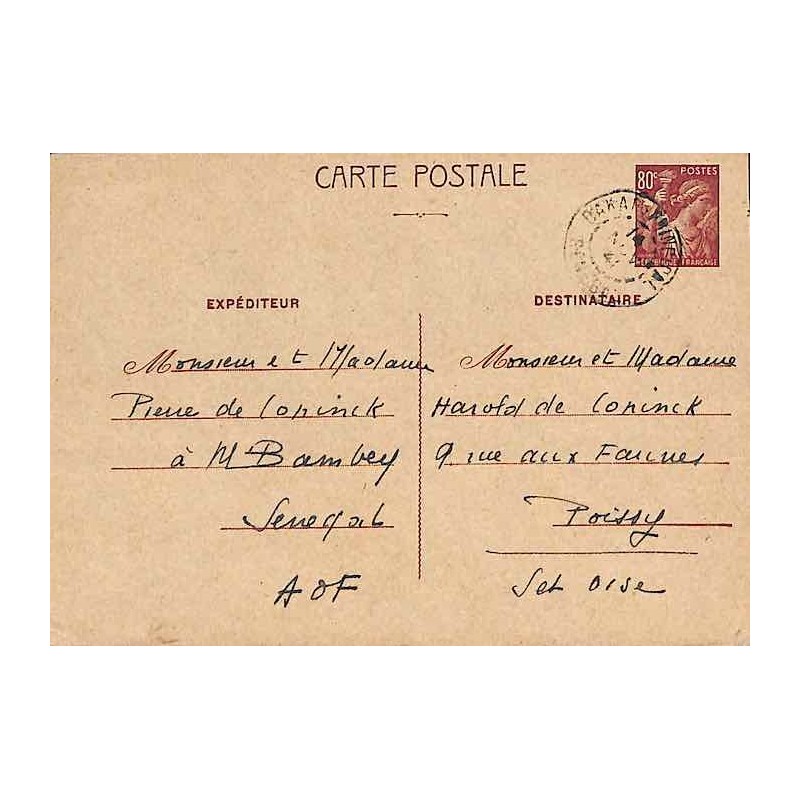 CARTE POSTALE
80c POSTES
RÉPUBLIQUE FRANÇAISE
DAKAR PRINCIPAL
EXPÉDITEUR
Monsieur et Madame
Pierre de Coninck
à M'Bambey
Senegal
AOF
DESTINATAIRE
Monsieur et Madame
Harold de Coninck
9 rue aux Faunes
Poissy
S et Oise